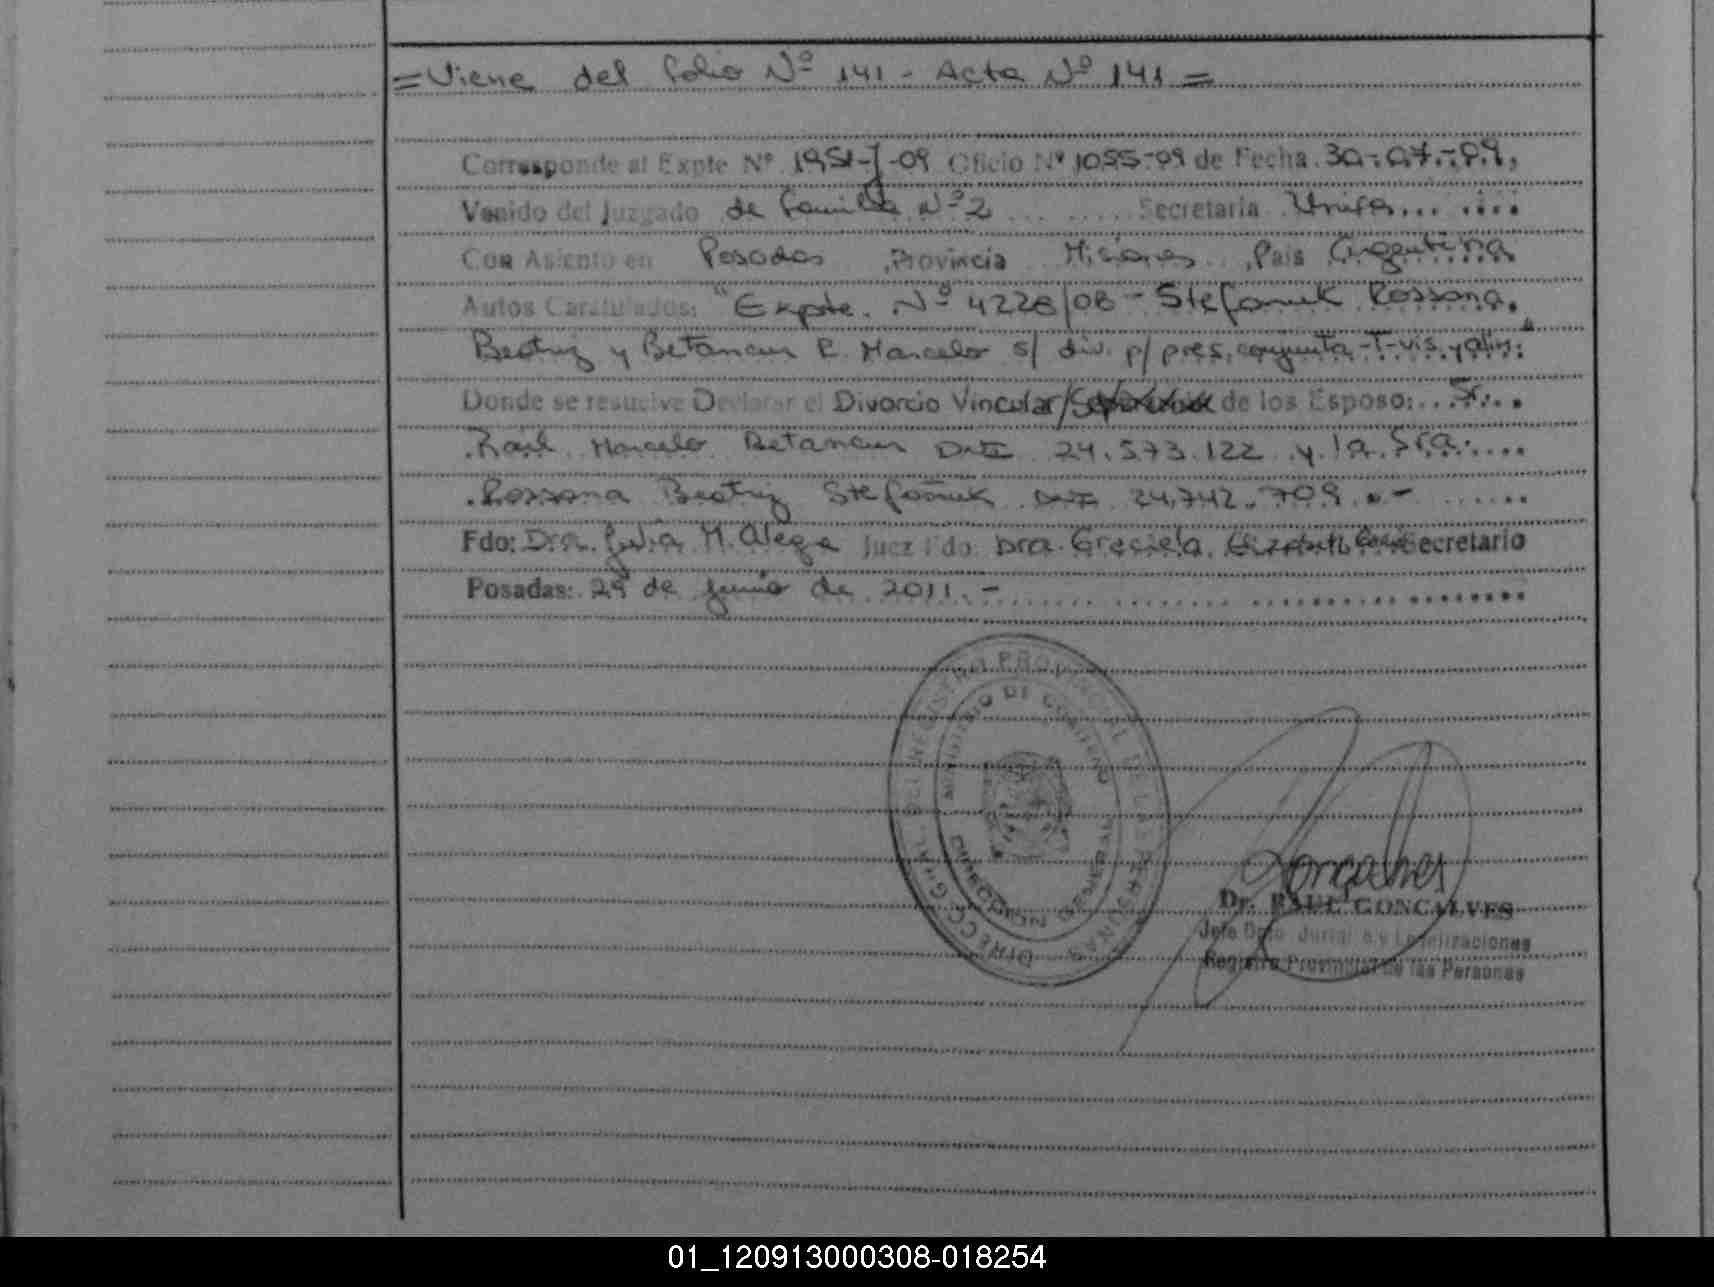 = Viene del folio Nº 141 - Acta Nº 141 =
Corresponde al Expte Nº 1951-J-09 Oficio Nº 1055-09 de Fecha 30-07-09,
Venido del Juzgado de familia Nº 2 Secretaria Unica
Con Asiento en Posadas Provincia Misiones País Argentina
Autos Caratulados: "Expte. Nº 4228/08 - Stefaniuk Rossana
Beatriz y Betancur R. Marcelo s/ div. p/ pres. conjunta -T-vis. y alim."
Donde se resuelve Declarar el Divorcio Vincular/ de los Esposo: Sr.
Raúl Marcelo Betancur DNI 24.573.122 y la Sra.
Rossana Beatriz Stefaniuk DNI 24.742.709.-
Fdo: Dra. Julia M. Alega Juez Fdo: Dra. Graciela Secretario
Posadas: 29 de junio de 2011.-
DIRECC. GRAL. DEL REGISTRO PROVINCIAL DE LAS PERSONAS
MINISTERIO DE GOBIERNO
DIRECCION
Dr. RAUL GONCALVES
Jefe Dpto. Jurídica y Legalizaciones
Registro Provincial de las Personas
01_120913000308-018254